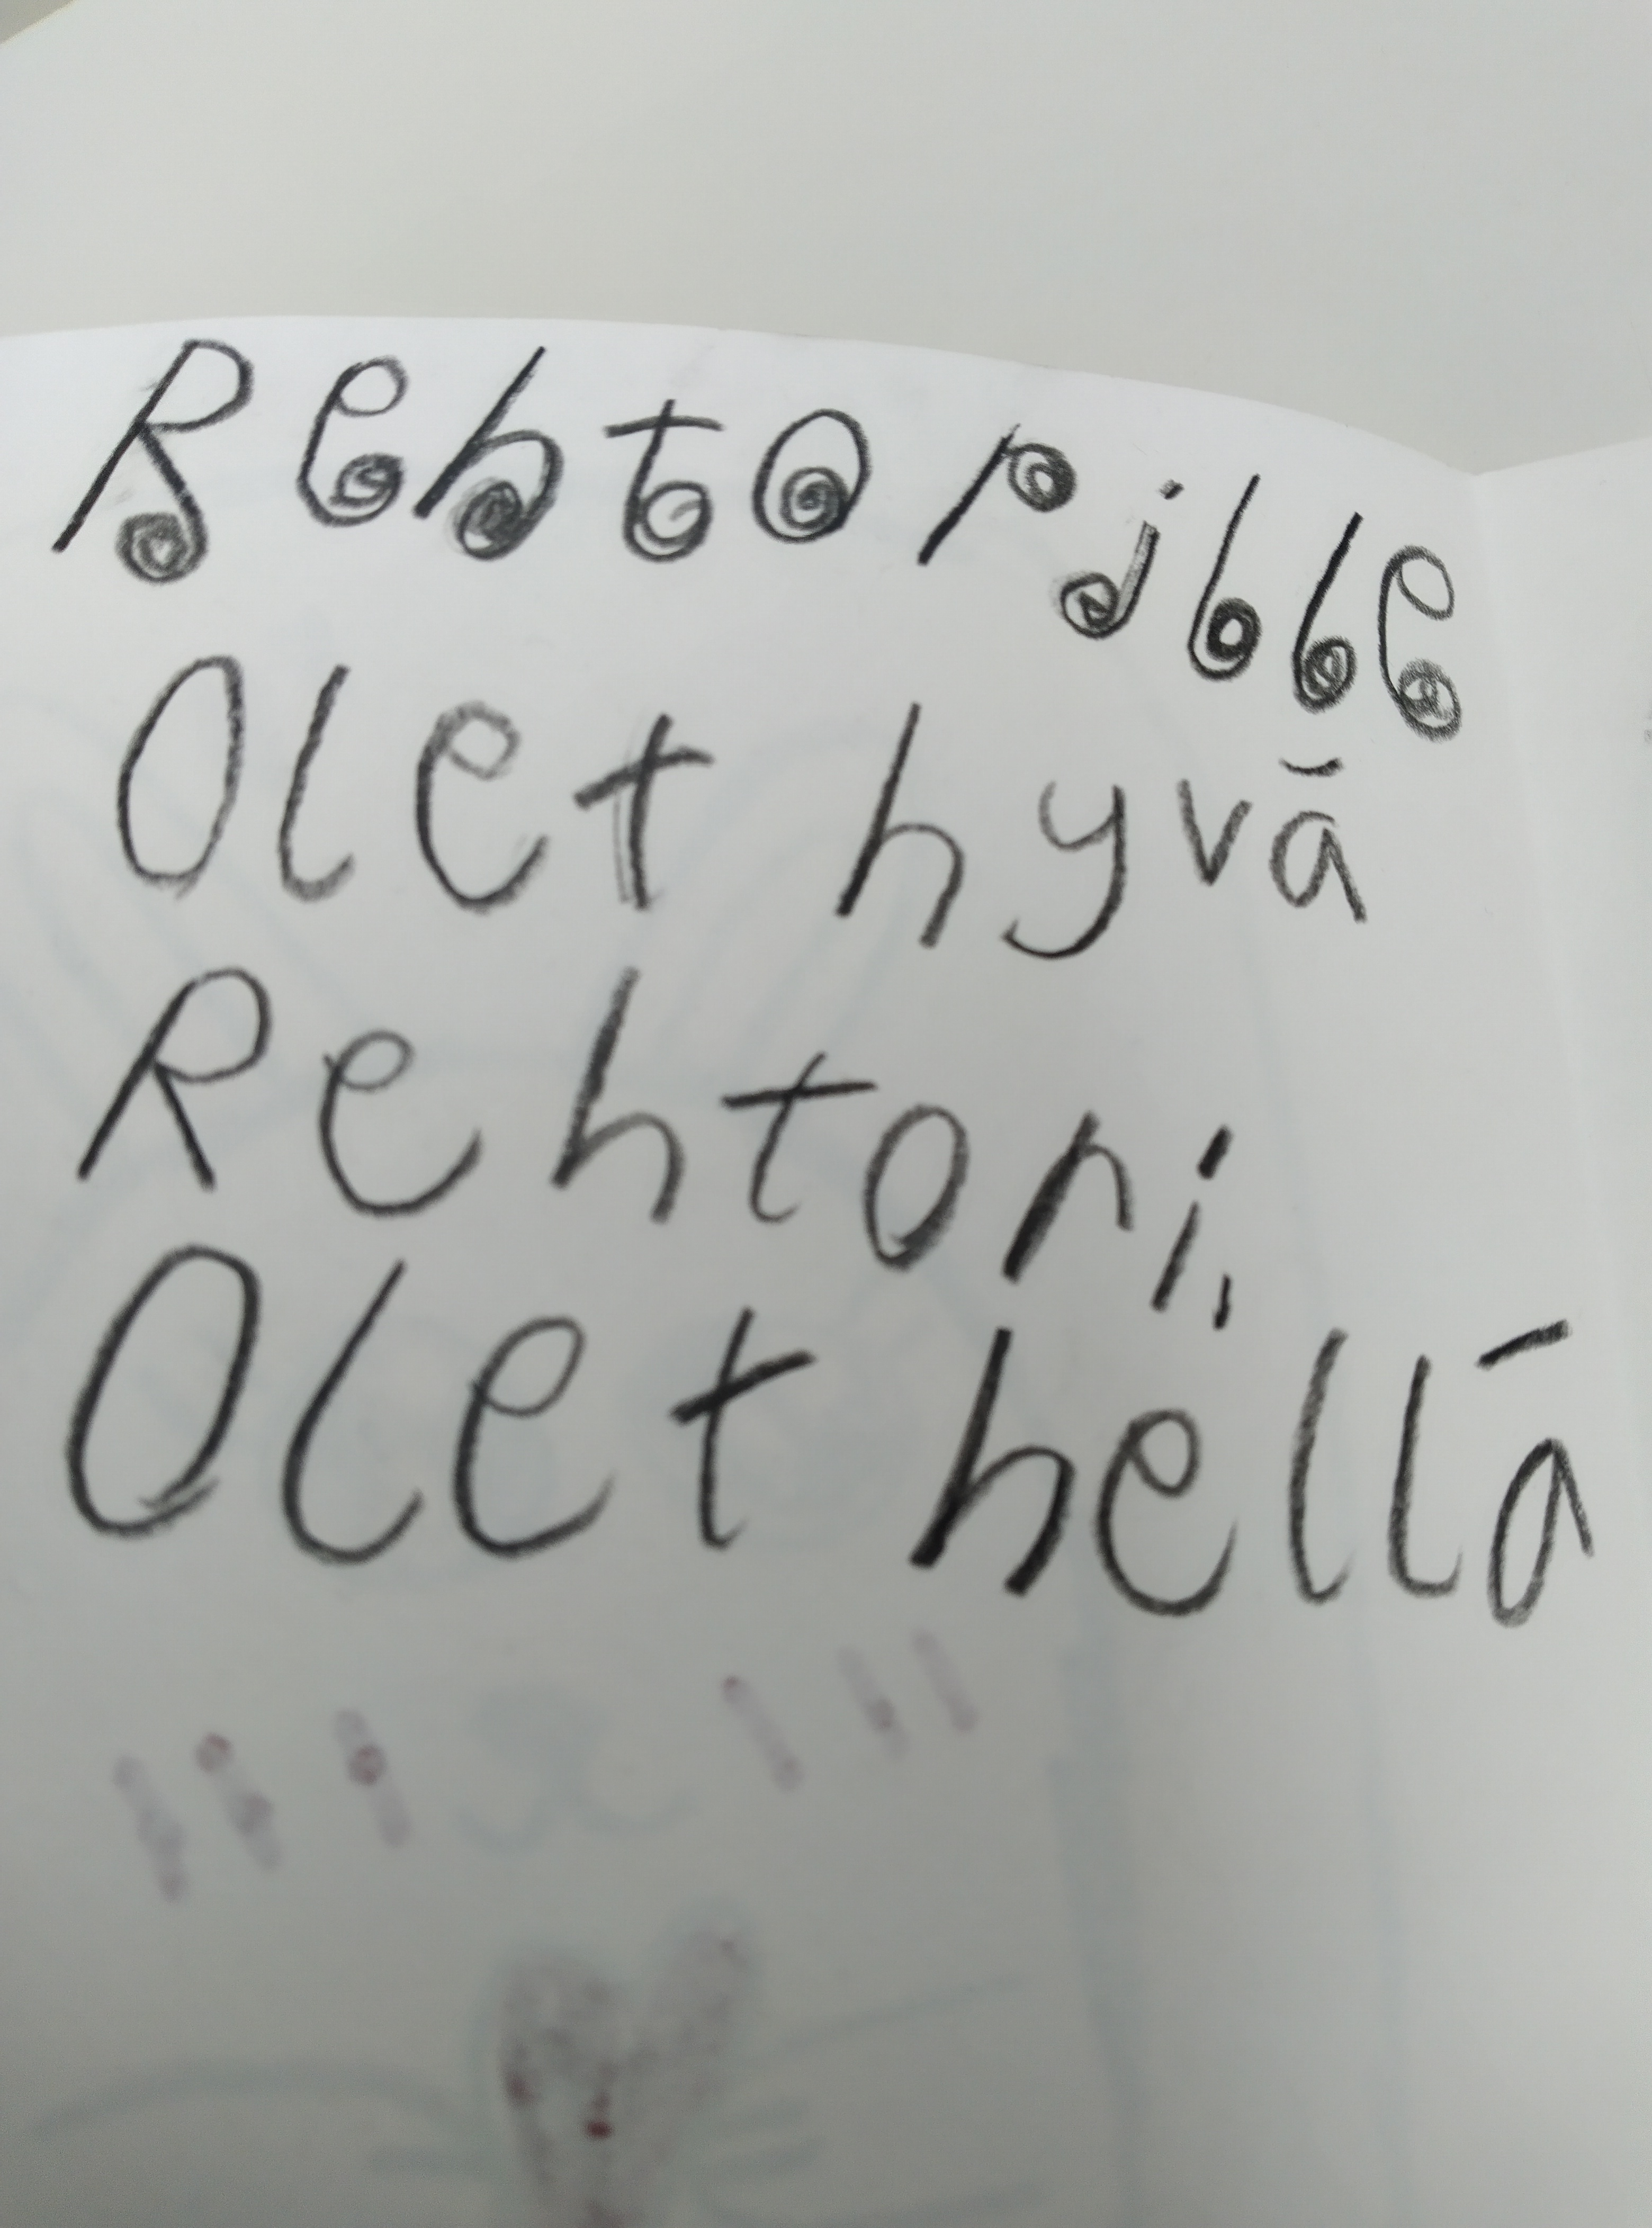 Rehtorille
Olet hyvä
Rehtori.
Olet hellä